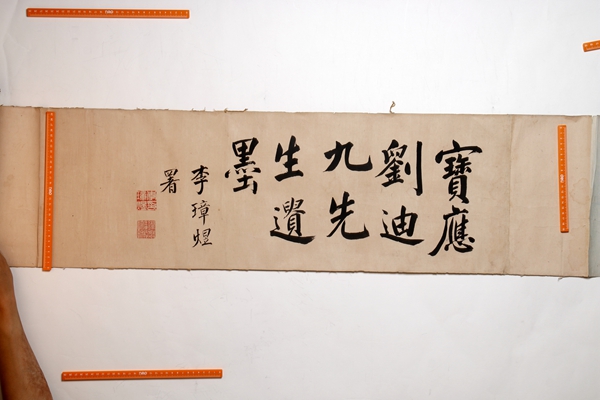 寶應
劉迪
九先
生遺
墨
李璋煜
署